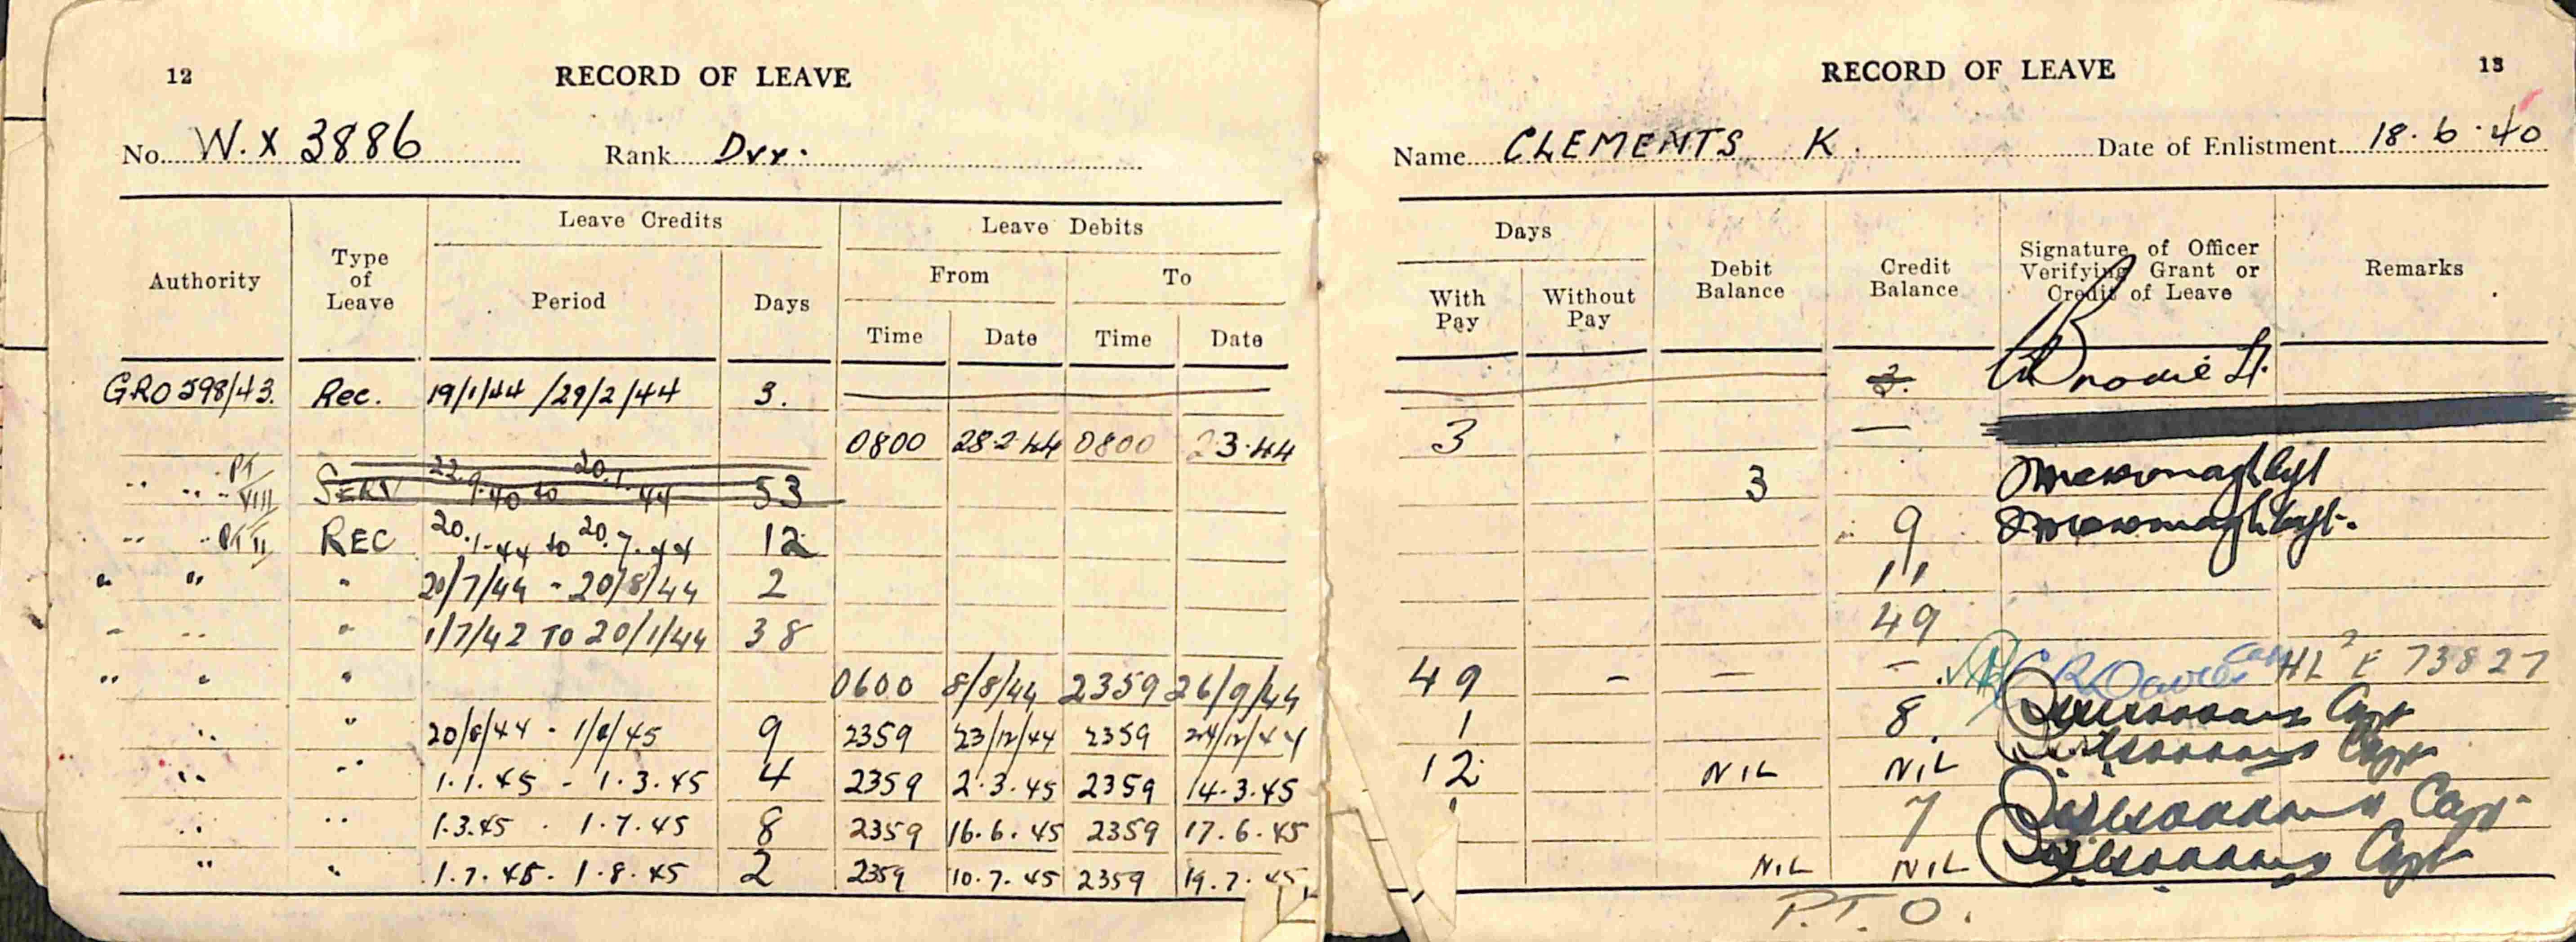 12 RECORD OF LEAVE
No. W.X 3886 Rank Dvr.
Authority Type of Leave Leave Credits Leave Debits
Period Days From To
Time Date Time Date
GRO 298/43. Rec. 19/1/44 / 29/2/44 3.
0800 28.2.44 0800 2.3.44
" " " PT VIII SERV 22.9.40 to 20.1.44 53
" " PT II REC 20.1.44 to 20.7.44 12
" " " 20/7/44 - 20/8/44 2
" " " 1/7/42 TO 20/1/44 38
" " " 0600 8/8/44 2359 26/9/44
" " 20/8/44 - 1/1/45 9 2359 23/12/44 2359 24/12/44
" " 1.1.45 - 1.3.45 4 2359 2.3.45 2359 14.3.45
" " 1.3.45 . 1.7.45 8 2359 16.6.45 2359 17.6.45
" " 1.7.45 - 1.8.45 2 2359 10.7.45 2359 19.7.45
RECORD OF LEAVE 13
Name CLEMENTS K. Date of Enlistment 18.6.40
Days Debit Balance Credit Balance Signature of Officer Verifying Grant or Credit of Leave Remarks
With Pay Without Pay
3. Brodie Lt.
3 —
3
9
11
49
49 - - - C R Davies Capt HL2 E 73827
1 8. Capt
12 NIL NIL Capt
1 7 Capt
NIL NIL Capt
P.T.O.